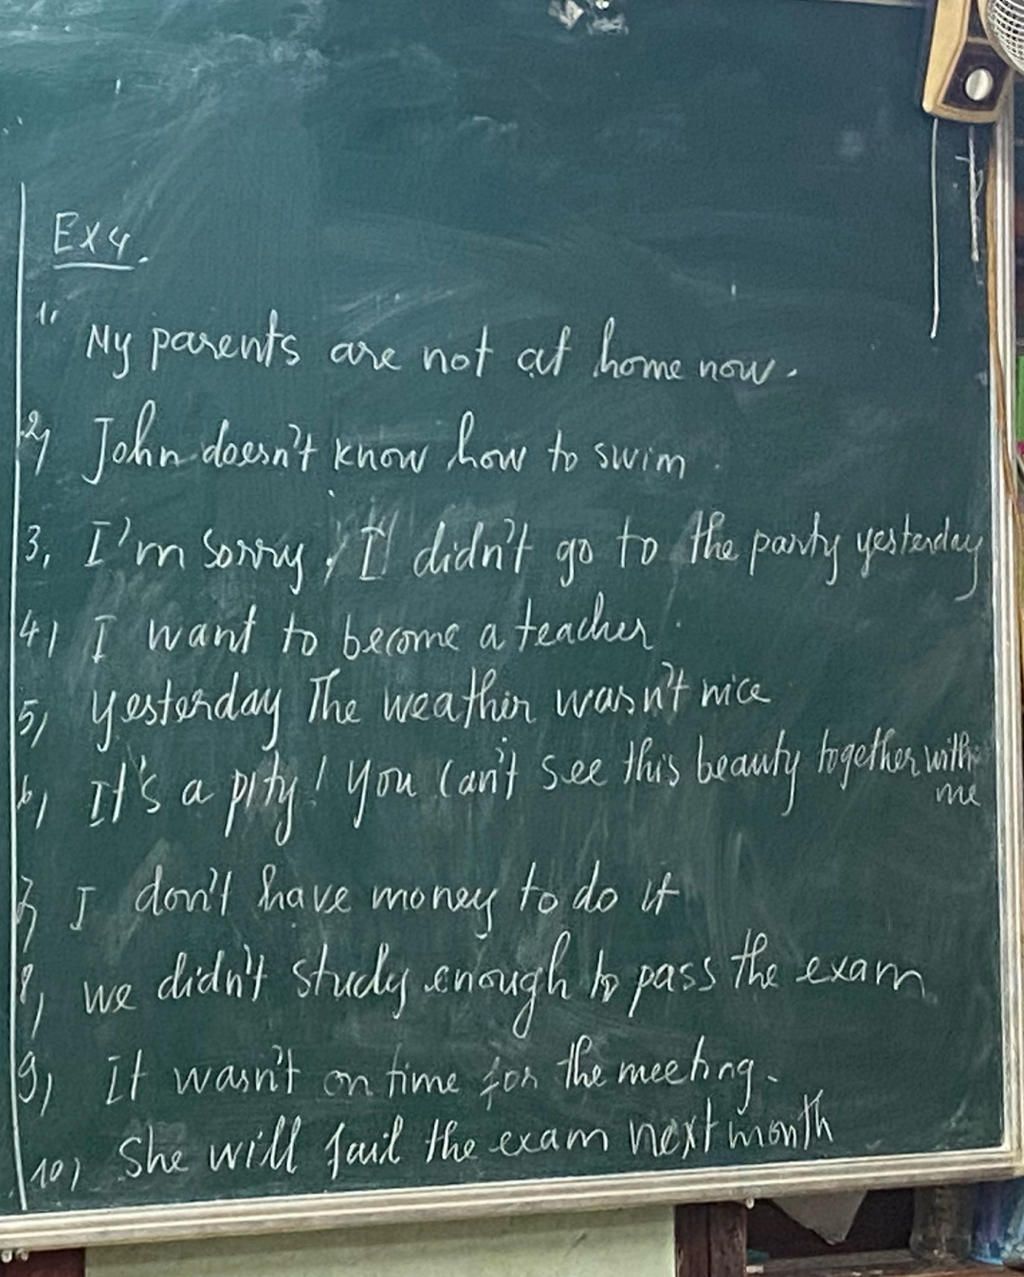 Ex 4.
1, My parents are not at home now.
2, John doesn't know how to swim.
3, I'm sorry, I didn't go to the party yesterday
4, I want to become a teacher.
5, Yesterday The weather wasn't nice
6, It's a pity! You can't see this beauty together with
me
7, I don't have money to do it
8, we didn't study enough to pass the exam
9, It wasn't on time for the meeting.
10, She will fail the exam next month